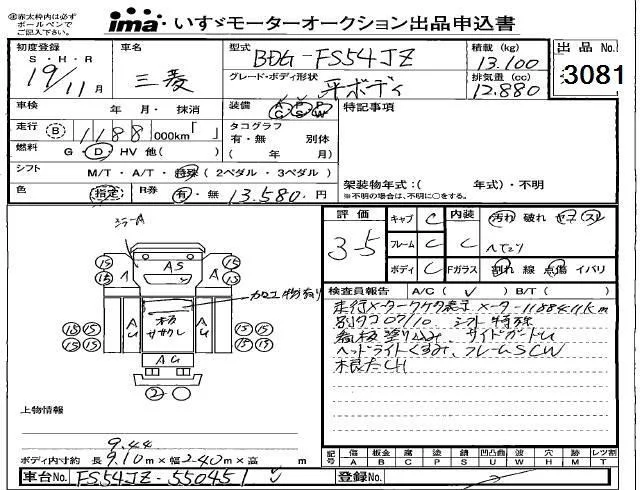 ※赤太枠内は必ず
ボールペンで
ご記入下さい。
ima いすゞモーターオークション出品申込書
初度登録 車名 型式 BDG-FS54JZ 積載(kg) 13.100 出品No.
S・H・R 19/11月 三菱 グレード・ボディ形状 平ボディ 排気量(cc) 12.880 3081
車検 年 月・抹消 装備 AC PS PW 特記事項
走行 B 1188 000km「 」 タコグラフ
有・無 別体
燃料 G・D・HV 他( ) ( 年 月)
シフト M/T・A/T・特殊(2ペダル・3ペダル) 架装物年式:( 年式)・不明
※不明の場合は、不明に○をする。
色 (指定) R券 有・無 13.580円
評価 3-5 キャブ C 内装 C 汚れ 破れ コゲ スレ
フレーム C ヘたり
ボディ C Fガラス 割れ 線 点傷 イバリ
検査員報告 A/C(✓) B/T( )
走行メーター1ケタ表示 メーター1188411km
別タコ07/10 シフト特殊
看板塗り込み、サイドガードU
ヘッドライトくすみ、フレームSCW
根太CH
ミラーA
AS
15 15 A A 15 15
加工物有り
板
ササクレ
AU AU AU
15 15 15 15
15 15 15 15
2
上物情報
9.44
ボディ内寸約 長9.10m×幅2.40m×高 m
記号 傷 A 板金 B 腐 C 塗 P 錆 S 凹凸曲 U 波 W 穴 H 跡 M レツ割 T
車台No. FS54JZ-550451 登録No.